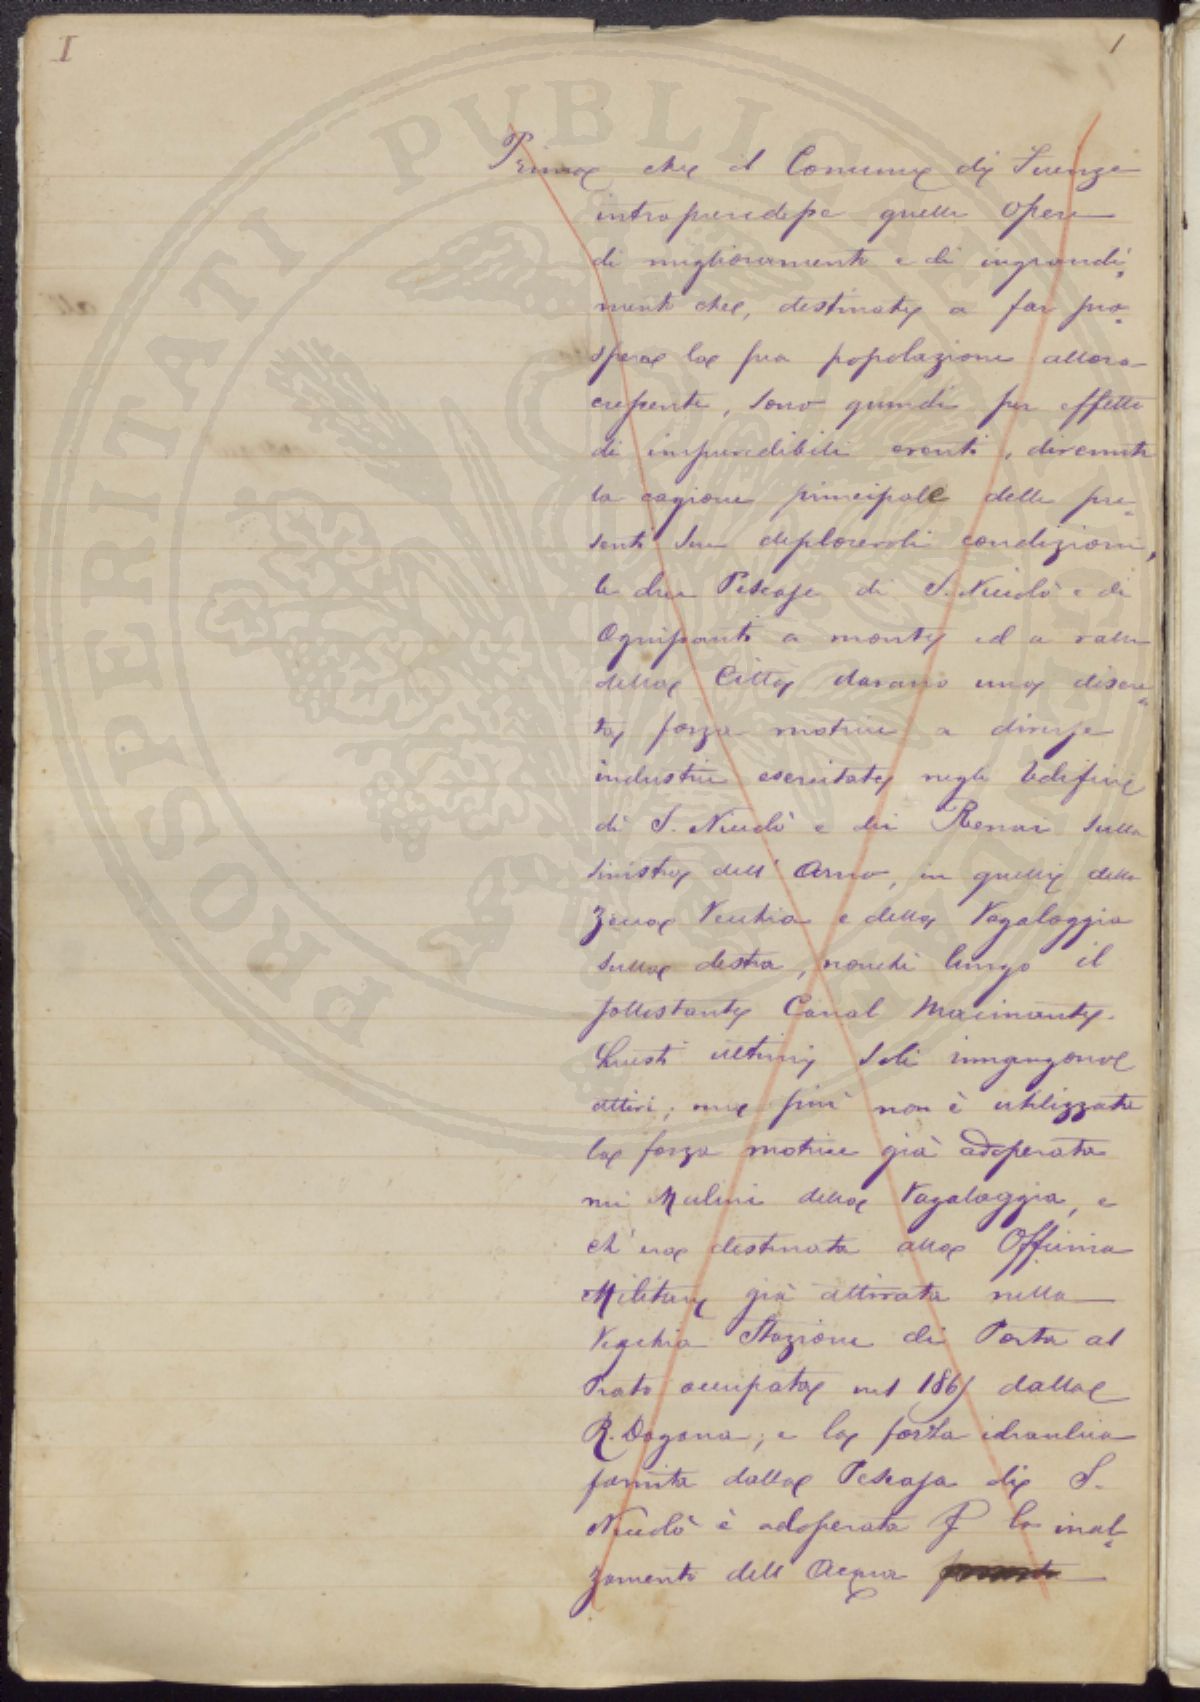 I
1
PROSPERITATI PUBLICAE AUGENDAE
Prima che il Comune di Firenze
intraprendesse quelle opere
di miglioramenti e di ingrandi-
menti che, destinate a far pro-
sperare la sua popolazione allora
crescente, sono quindi per effetto
di imprevedibili eventi, divenute
la cagione principale delle pre-
senti sue deplorevoli condizioni,
le due Pescaje di S. Niccolò e di
Ognissanti a monte ed a valle
della Città davano una discre-
ta forza motrice a diverse
industrie esercitate negli Edifizi
di S. Niccolò e dei Renai sulla
sinistra dell' Arno, in quelli della
Zecca Vecchia e della Vagaloggia
sulla destra, nonchè lungo il
sottostante Canal Macinante.
Questi ultimi soli rimangono
attivi; ma più non è utilizzata
la forza motrice già adoperata
nei Mulini della Vagaloggia, e
ch' era destinata alla Officina
Militare già attivata nella
Vecchia Stazione di Porta al
Prato occupata nel 186 dalla
R. Dogana; e la forza idraulica
fornita dalla Pescaja di S.
Niccolò è adoperata P lo inal-
zamento dell' Acqua